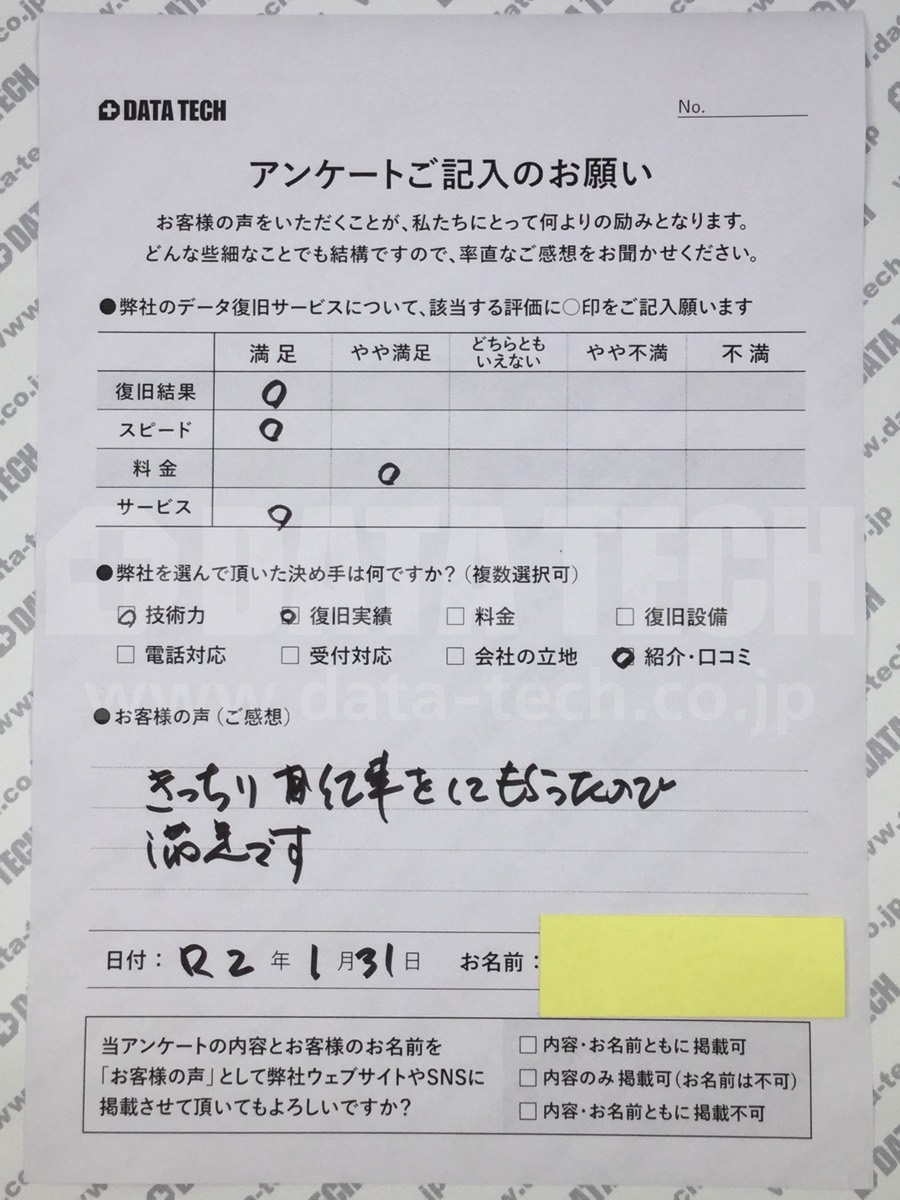 DATA TECH
No.
アンケートご記入のお願い
お客様の声をいただくことが、私たちにとって何よりの励みとなります。
どんな些細なことでも結構ですので、率直なご感想をお聞かせください。
●弊社のデータ復旧サービスについて、該当する評価に○印をご記入願います
満足 やや満足 どちらとも いえない やや不満 不満
復旧結果 ○
スピード ○
料金 ○
サービス ○
●弊社を選んで頂いた決め手は何ですか?(複数選択可)
技術力 復旧実績 □ 料金 □ 復旧設備
□ 電話対応 □ 受付対応 □ 会社の立地 紹介・口コミ
●お客様の声(ご感想)
きっちり をしてもらったので
満足です
日付: R2 年 1 月 31 日 お名前:
当アンケートの内容とお客様のお名前を
「お客様の声」として弊社ウェブサイトやSNSに
掲載させて頂いてもよろしいですか?
□ 内容・お名前ともに掲載可
□ 内容のみ掲載可(お名前は不可)
□ 内容・お名前ともに掲載不可
DATA TECH
www.data-tech.co.jp